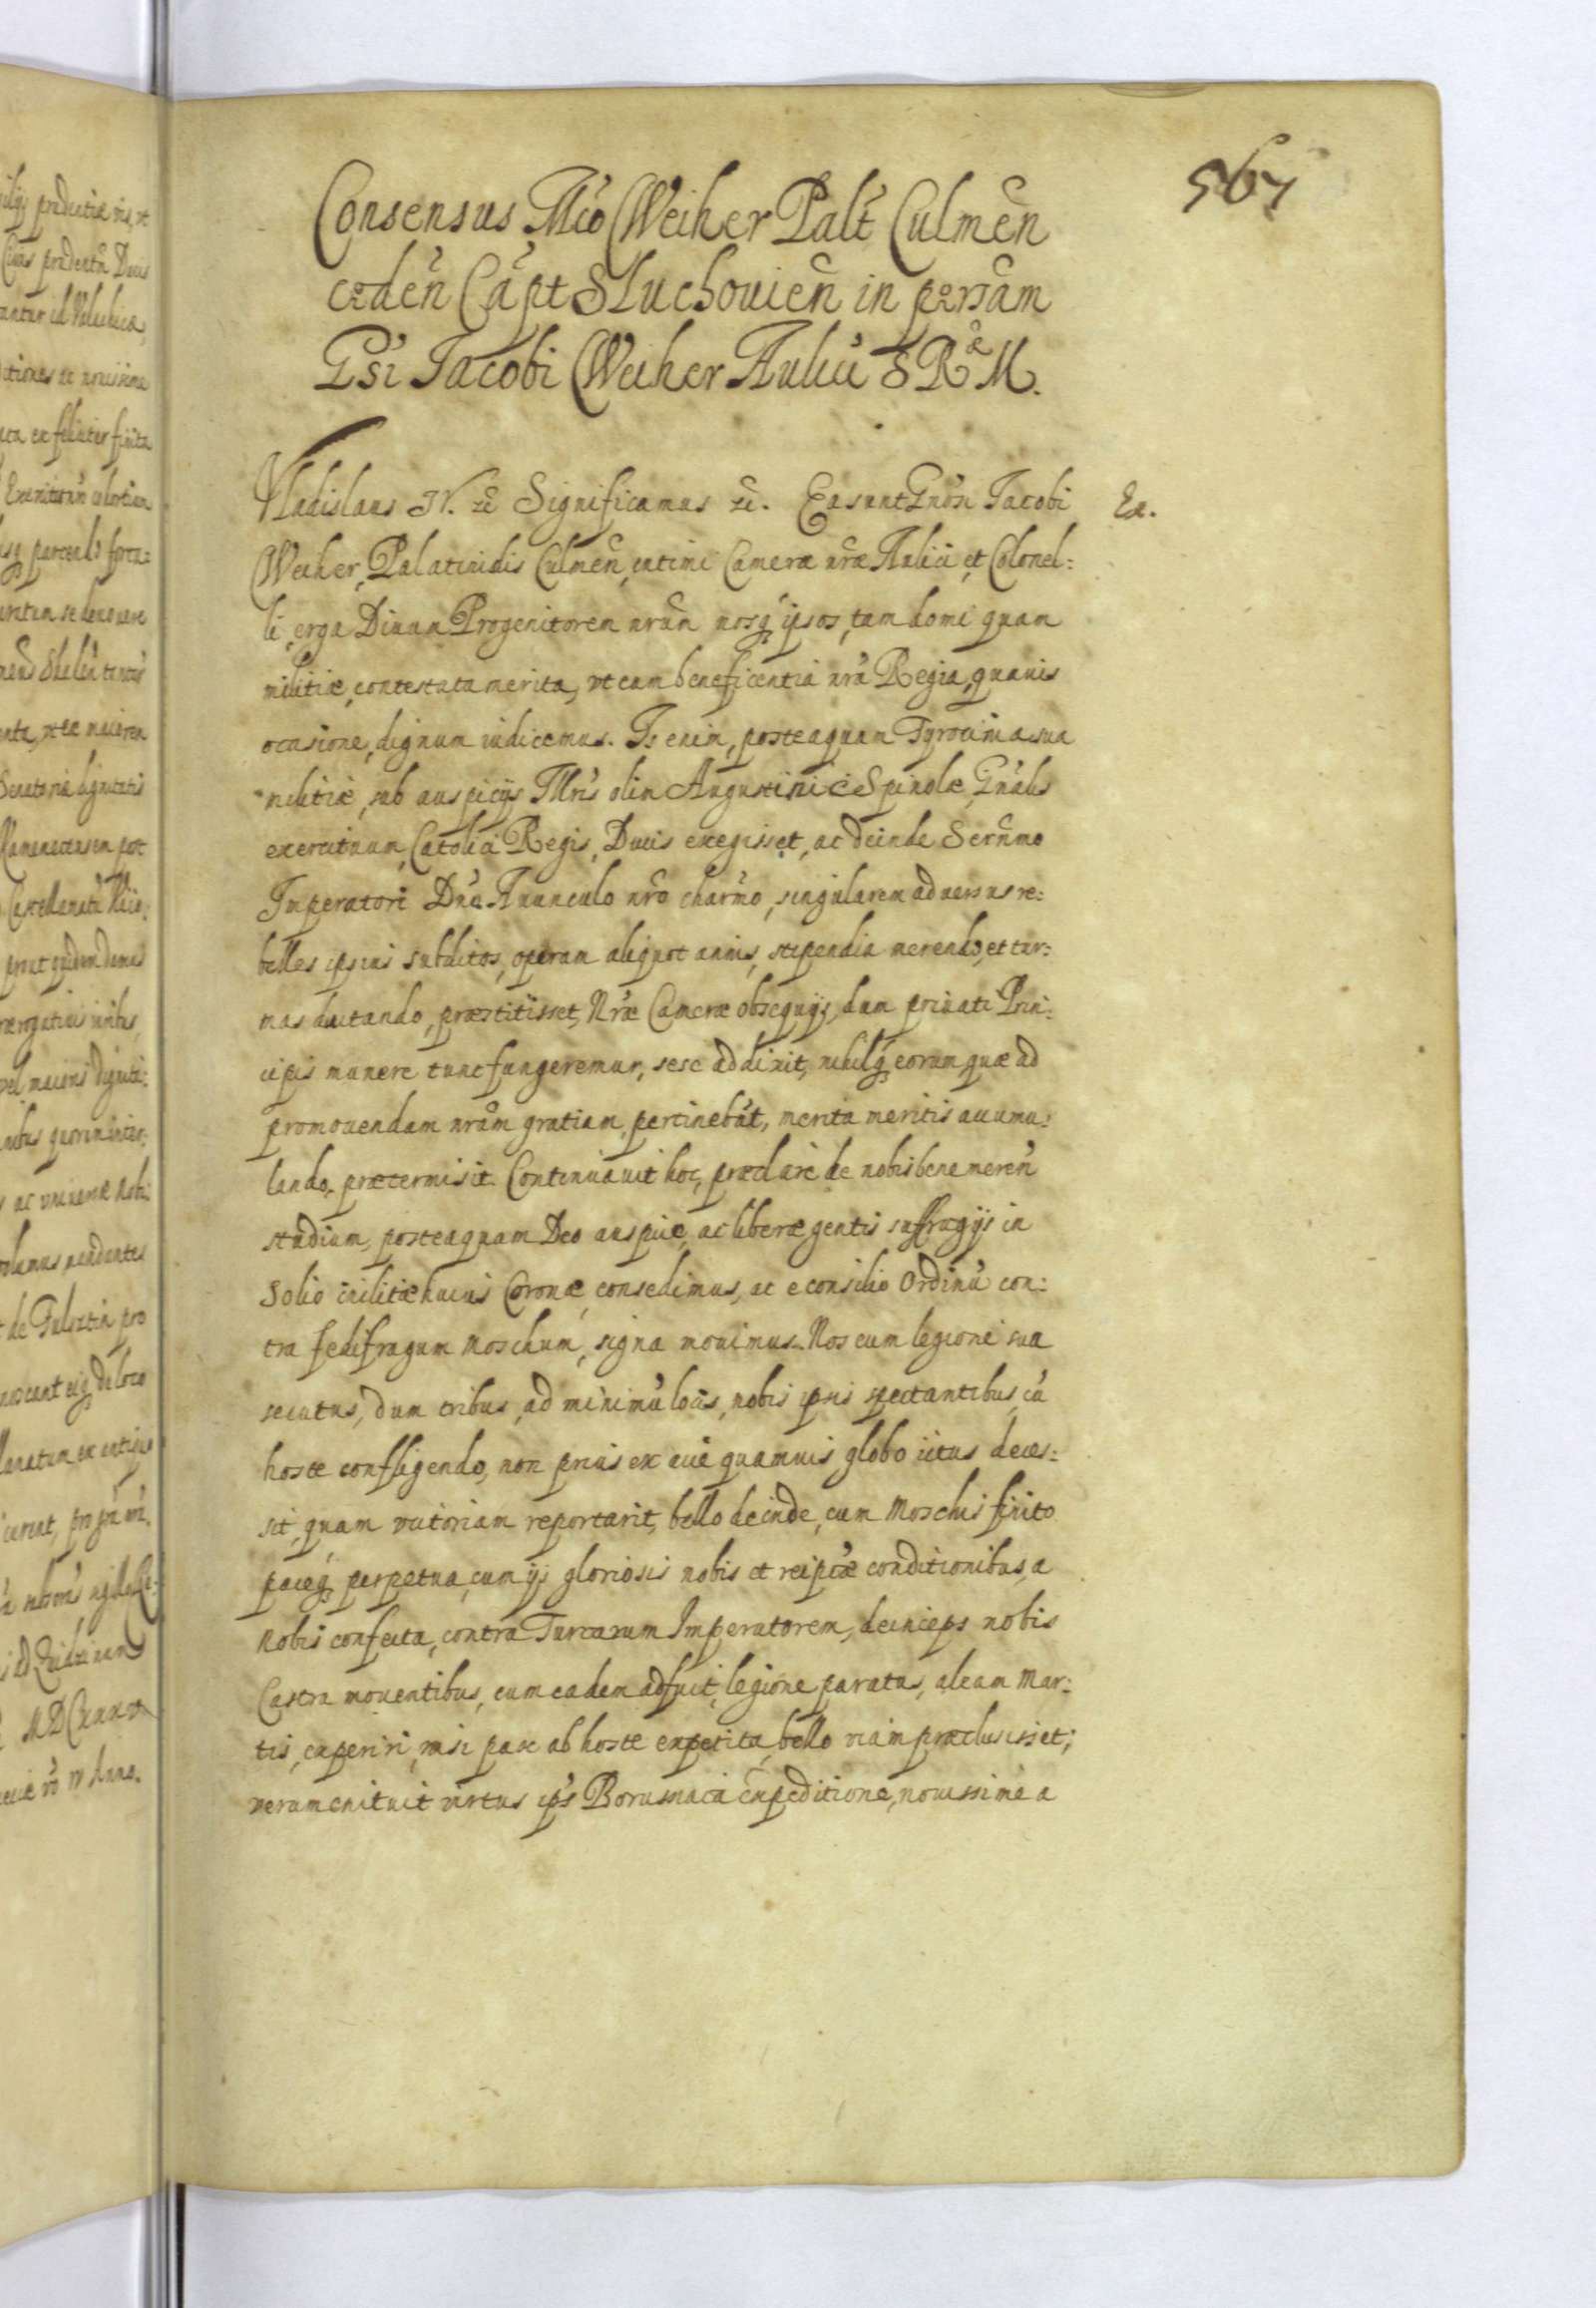 567
Consensus Mco Weiher Palt Culmen
ceden Capt Sluchovien in persam
Gsi Jacobi Weiher Aulici S R M.
Vladislaus IV. &c Significamus &c. Ea sunt Gnosi Jacobi
Ex.
Weiher, Palatinidis Culmen, intimi Cameræ nræ Aulici et Colonel:
li, erga Divum Progenitorem nrum nosq ipsos, tam domi quam
militiæ, contestata merita, vt eum beneficentia nra Regia, quavis
ocasione, dignum iudicemus. Is enim, posteaquam Tyrocinia sua
militiæ, sub auspicijs Illris olim Augustini Spinolæ, Gnalis
exercituum, Catolici Regis, Ducis exegisset, ac deinde Sernmo
Imperatori Dno Avunculo nro charmo, singularem adversus re:
belles ipsius subditos, operam aliquot annis, stipendia merendo, et tur:
mas ductando, præstitisset, Nræ Cameræ obsequijs, dum privati Prin:
cipis munere tunc fungeremur, sese addixit, nihilq eorum, quæ ad
promovendam nram gratiam, pertinebat, merita meritis accumu:
lando, prætermisit. Continuavit hoc, præclare de nobis bene meren
studium, posteaquam Deo auspice, ac liberæ gentis suffragijs in
Solio inclitæ huius Coronæ, consedimus, ac e consilio Ordinu con:
tra fedifragum Moschum, signa movimus. Nos cum legione sua
secutus, dum tribus, ad minimu locis, nobis ipsis spectantibus, cu
hoste confligendo, non prius ex acie quamvis globo ictus deces:
sit, quam victoriam reportarit, bello deinde, cum Moschis finito
paceq perpetua, cum ijs gloriosis nobis et reipcæ conditionibus, a
Nobis confecta, contra Turcarum Imperatorem, deinceps nobis
Castra moventibus, cum eadem adfuit, legione paratus, aleam Mar:
tis, experiri, nisi pace ab hoste expetita, bello viam præclusisset;
verum enituit virtus ips Borussiaca expeditione, novissime a